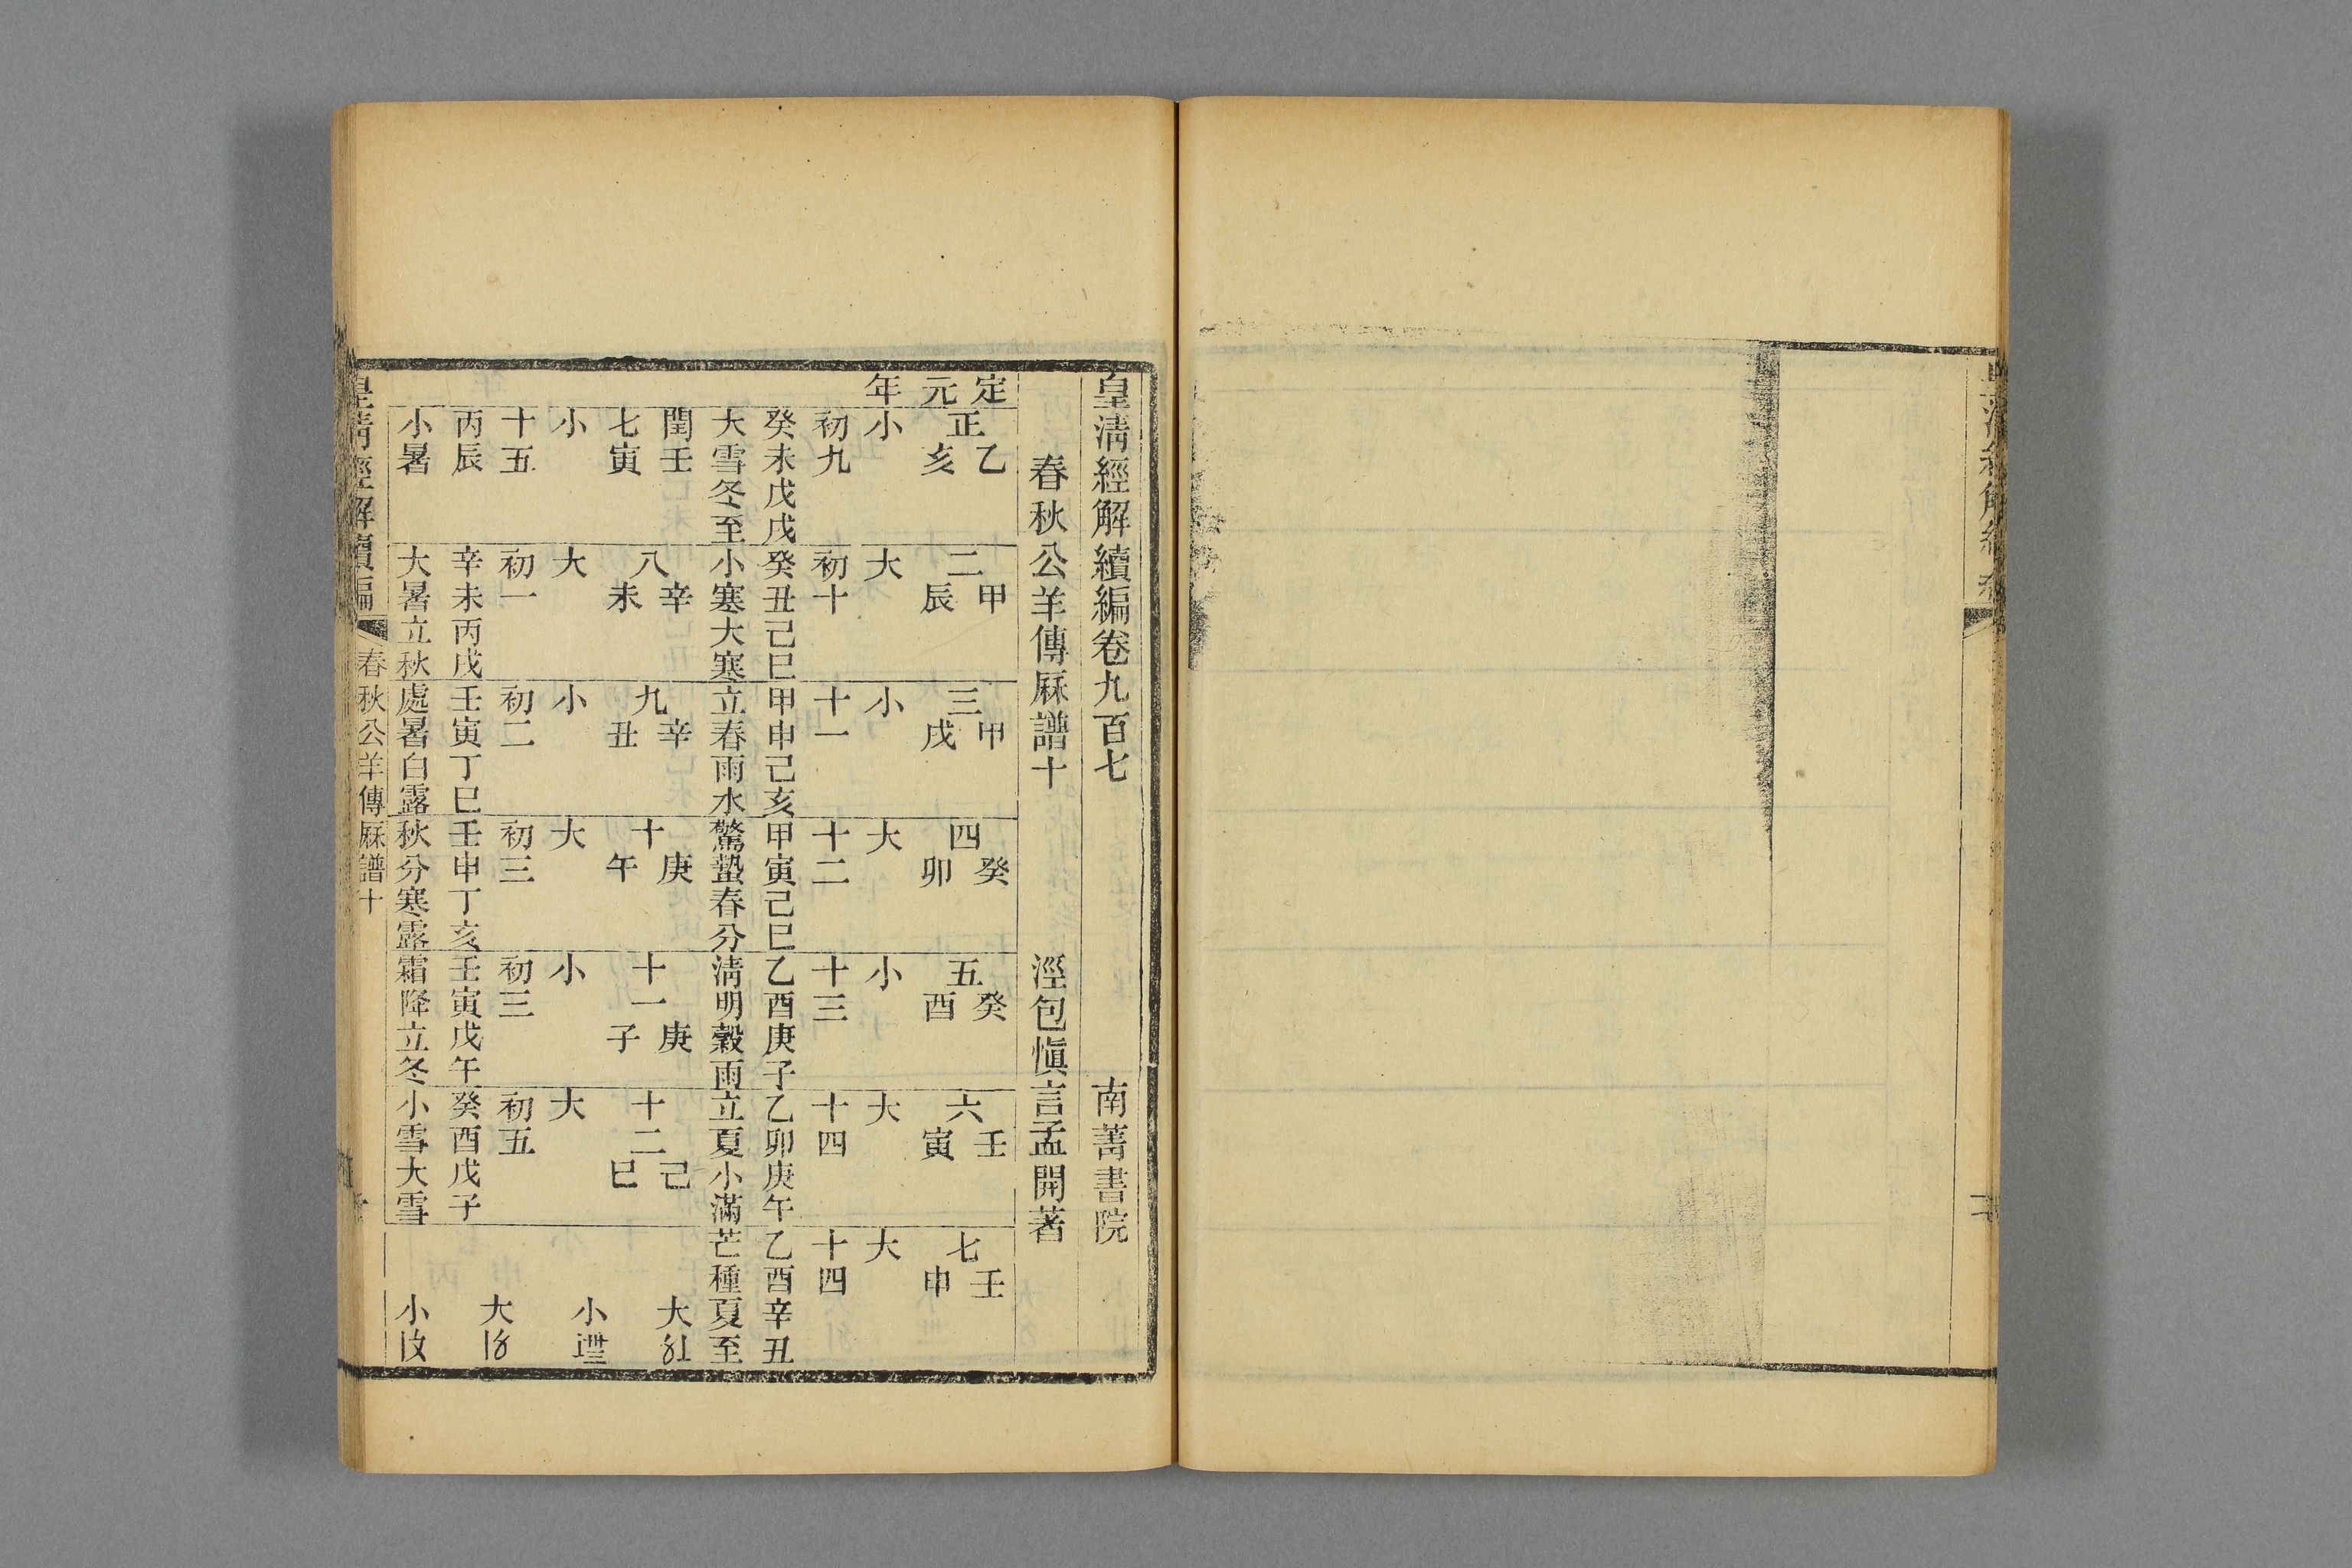 皇清經解續編卷九百七
南菁書院
春秋公羊傳厤譜十
涇包慎言孟開著
定元年
正
乙亥
小
初九
癸未戊戌
大雪冬至
二
甲辰
大
初十
癸丑己巳
小寒大寒
三
甲戌
小
十一
甲申己亥
立春雨水
四
癸卯
大
十二
甲寅己巳
驚蟄春分
五
癸酉
小
十三
乙酉庚子
清明穀雨
六
壬寅
大
十四
乙卯庚午
立夏小滿
七
壬申
大
十四
乙酉辛丑
芒種夏至
閏七
壬寅
小
十五
丙辰
小暑
八
辛未
大
初一
辛未丙戌
大暑立秋
九
辛丑
小
初二
壬寅丁巳
處暑白露
十
庚午
大
初三
壬申丁亥
秋分寒露
十一
庚子
小
初三
壬寅戊午
霜降立冬
十二
己巳
大
初五
癸酉戊子
小雪大雪
大
小
大
小
皇清經解續編
春秋公羊傳厤譜十